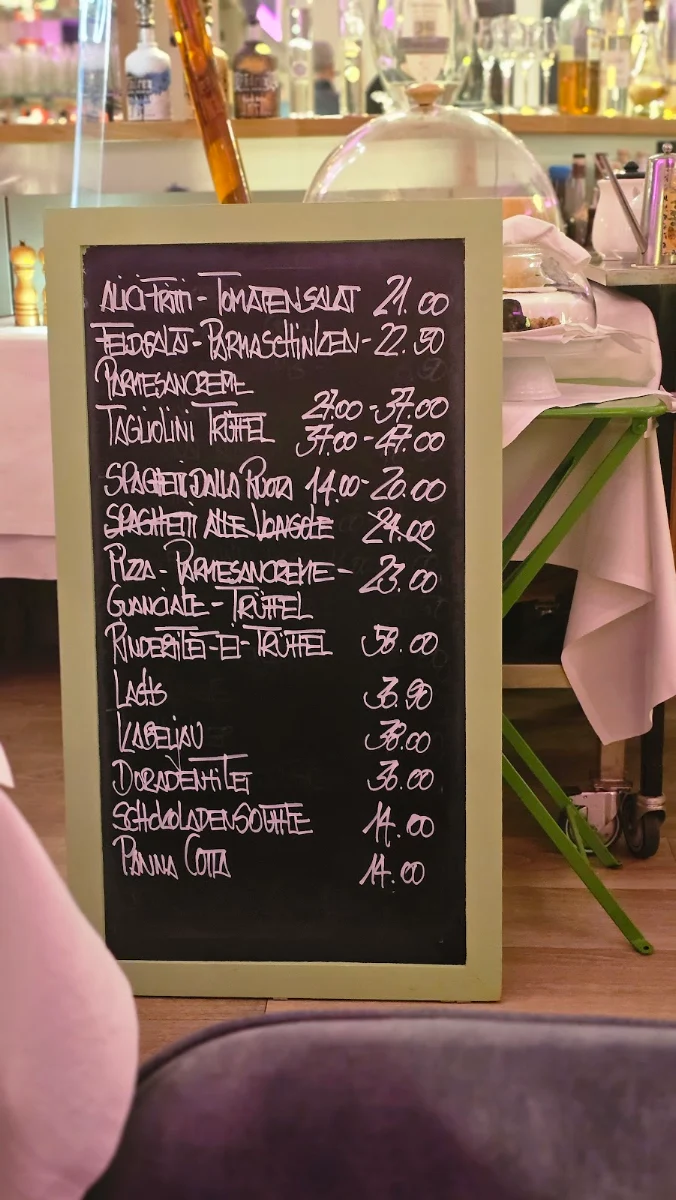 ALICI FRITTI - TOMATENSALAT 21.00
FELDSALAT - PARMASCHINKEN - 22.50
PARMESANCREME
27.00 - 37.00
TAGLIOLINI TRÜFFEL 37.00 - 47.00
SPAGHETTI DALLA RUOTA 14.00 - 20.00
SPAGHETTI ALLE VONGOLE 24.00
PIZZA - PARMESANCREME - 23.00
GUANCIALE - TRÜFFEL
RINDERFILET - EI - TRÜFFEL 58.00
LACHS 36.90
KABELJAU 38.00
DORADENFILET 36.00
SCHOKOLADENSOUFFLE 14.00
PANNA COTTA 14.00